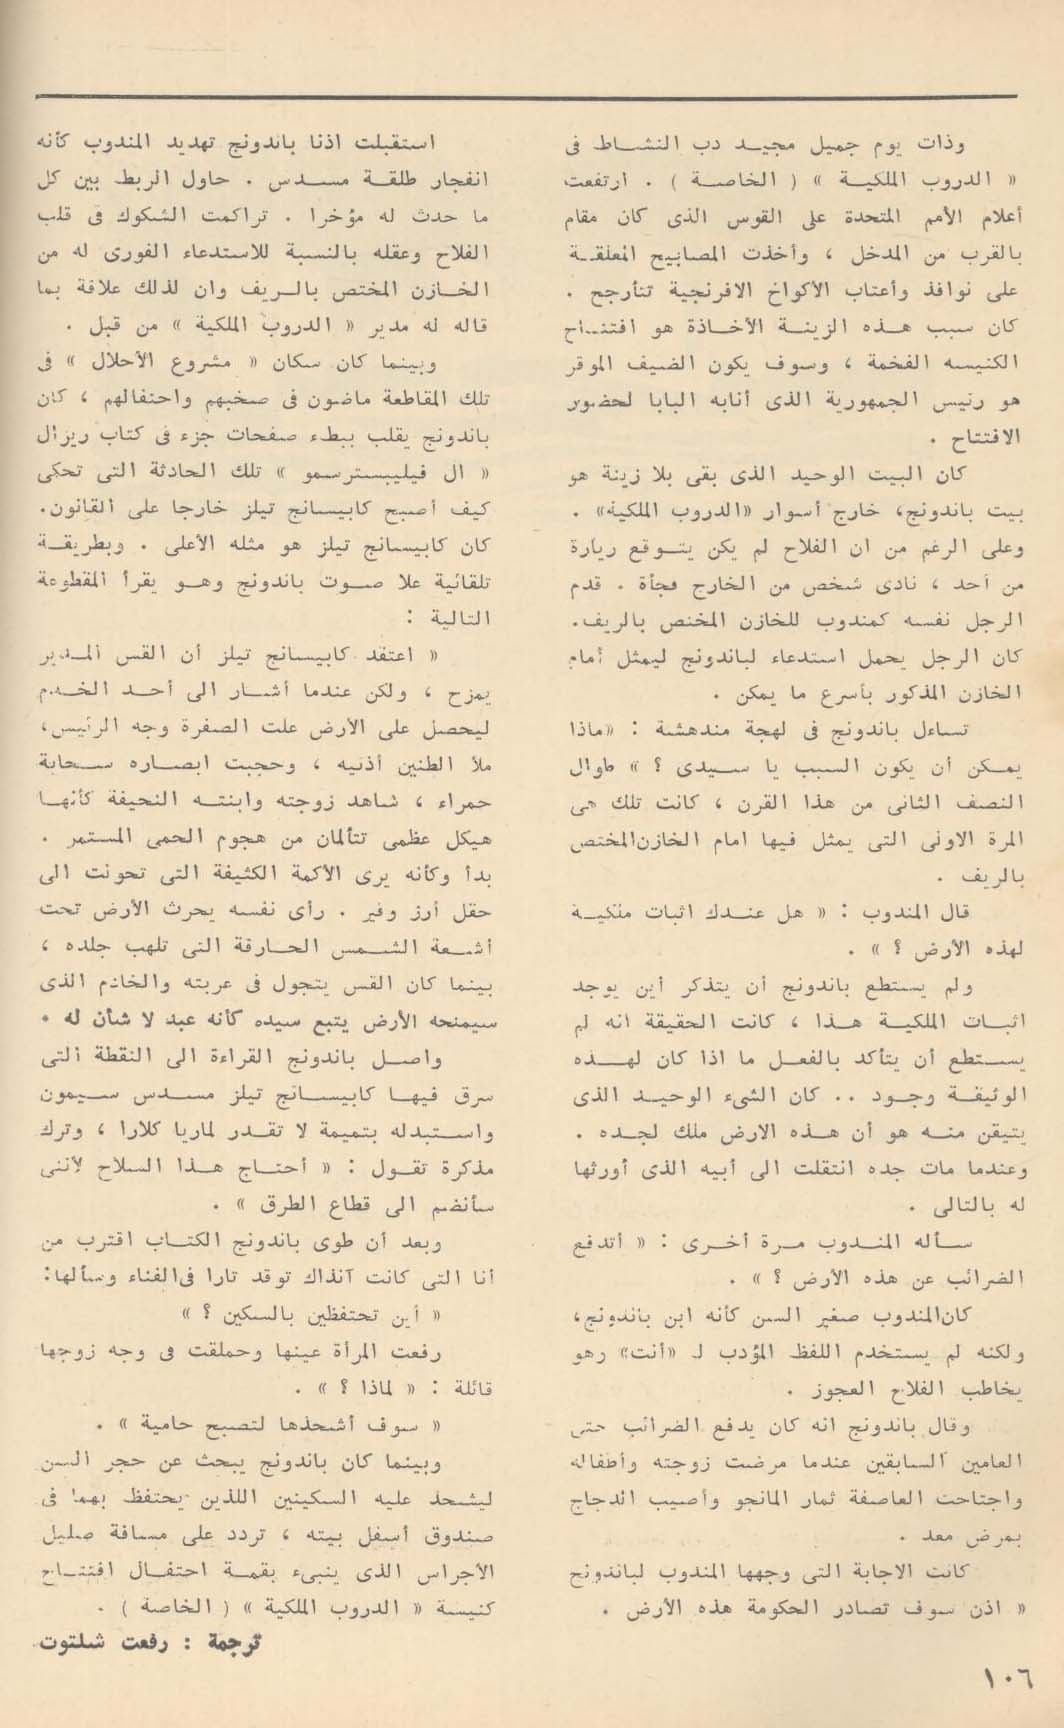 وذات يوم جميل مجيد دب النشاط فى
« الدروب الملكية » ( الخاصة ) . ارتفعت
أعلام الأمم المتحدة على القوس الذى كان مقام
بالقرب من المدخل ، وأخذت المصابيح المعلقة
على نوافذ وأعتاب الأكواخ الافرنجية تتأرجح .
كان سبب هذه الزينة الأخاذة هو افتتاح
الكنيسه الفخمة ، وسوف يكون الضيف الموقر
هو رئيس الجمهورية الذى أنابه البابا لحضور
الافتتاح .
كان البيت الوحيد الذى بقى بلا زينة هو
بيت باندونج، خارج أسوار «الدروب الملكية» .
وعلى الرغم من ان الفلاح لم يكن يتوقع زيارة
من أحد ، نادى شخص من الخارج فجأة . قدم
الرجل نفسه كمندوب للخازن المختص بالريف.
كان الرجل يحمل استدعاء لباندونج ليمثل أمام
الخازن المذكور بأسرع ما يمكن .
تساءل باندونج فى لهجة مندهشة : «ماذا
يمكن أن يكون السبب يا سيدى ؟ » طوال
النصف الثانى من هذا القرن ، كانت تلك هى
المرة الاولى التى يمثل فيها امام الخازن المختص
بالريف .
قال المندوب : « هل عندك اثبات ملكية
لهذه الأرض ؟ » .
ولم يستطع باندونج أن يتذكر أين يوجد
اثبات الملكية هذا ، كانت الحقيقة انه لم
يستطع أن يتأكد بالفعل ما اذا كان لهذه
الوثيقة وجود .. كان الشىء الوحيد الذى
يتيقن منه هو أن هذه الارض ملك لجده .
وعندما مات جده انتقلت الى أبيه الذى أورثها
له بالتالى .
سأله المندوب مرة أخرى : « أتدفع
الضرائب عن هذه الأرض ؟ » .
كان المندوب صغير السن كأنه ابن باندونج،
ولكنه لم يستخدم اللفظ المؤدب لـ «أنت» وهو
يخاطب الفلاح العجوز .
وقال باندونج انه كان يدفع الضرائب حتى
العامين السابقين عندما مرضت زوجته وأطفاله
واجتاحت العاصفة ثمار المانجو وأصيب الدجاج
بمرض معد .
كانت الاجابة التى وجهها المندوب لباندونج
« اذن سوف تصادر الحكومة هذه الأرض .
استقبلت اذنا باندونج تهديد المندوب كأنه
انفجار طلقة مسدس . حاول الربط بين كل
ما حدث له مؤخرا . تراكمت الشكوك فى قلب
الفلاح وعقله بالنسبة للاستدعاء الفورى له من
الخازن المختص بالريف وان لذلك علاقة بما
قاله له مدير « الدروب الملكية » من قبل .
وبينما كان سكان « مشروع الأحلال » فى
تلك المقاطعة ماضون فى صخبهم واحتفالهم ، كان
باندونج يقلب ببطء صفحات جزء فى كتاب ريزال
« ال فيليبسترسمو » تلك الحادثة التى تحكى
كيف أصبح كابيسانج تيلز خارجا على القانون.
كان كابيسانج تيلز هو مثله الأعلى . وبطريقة
تلقائية علا صوت باندونج وهو يقرأ المقطوعة
التالية :
« اعتقد كابيسانج تيلز أن القس المدبر
يمزح ، ولكن عندما أشار الى أحد الخدم
ليحصل على الأرض علت الصفرة وجه الرئيس،
ملأ الطنين أذنيه ، وحجبت ابصاره سحابة
حمراء ، شاهد زوجته وابنته النحيفة كأنها
هيكل عظمى تتألمان من هجوم الحمى المستمر .
بدأ وكأنه يرى الأكمة الكثيفة التى تحولت الى
حقل أرز وفير . رأى نفسه يحرث الأرض تحت
أشعة الشمس الحارقة التى تلهب جلده ،
بينما كان القس يتجول فى عربته والخادم الذى
سيمنحه الأرض يتبع سيده كأنه عبد لا شأن له .
واصل باندونج القراءة الى النقطة التى
سرق فيها كابيسانج تيلز مسدس سيمون
واستبدله بتميمة لا تقدر لماريا كلارا ، وترك
مذكرة تقول : « أحتاج هذا السلاح لأننى
سأنضم الى قطاع الطرق » .
وبعد أن طوى باندونج الكتاب اقترب من
أنا التى كانت آنذاك توقد نارا فى الفناء وسألها:
« أين تحتفظين بالسكين ؟ »
رفعت المرأة عينها وحملقت فى وجه زوجها
قائلة : « لماذا ؟ » .
« سوف أشحذها لتصبح حامية » .
وبينما كان باندونج يبحث عن حجر السن
ليشحذ عليه السكينين اللذين يحتفظ بهما فى
صندوق أسفل بيته ، تردد على مسافة صليل
الأجراس الذى ينبىء بقمة احتفال افتتاح
كنيسة « الدروب الملكية » ( الخاصة ) .
ترجمة : رفعت شلتوت
١٠٦